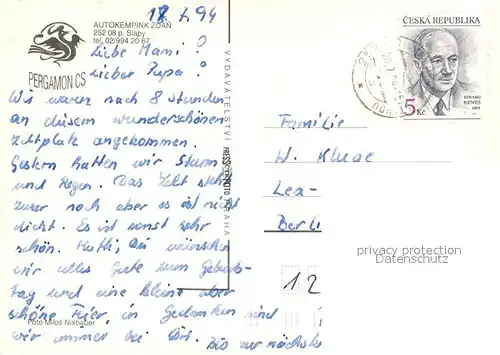 17.7.94
AUTOKEMPINK ŽDÁŇ
252 08 p. Slapy
tel. 02/994 20 67
PERGAMON CS
Liebe Mami!
Lieber Papa!
Wir waren nach 8 Stunden
an diesem wunderschönen
Zeltplatz angekommen.
Gestern hatten wir Sturm
und Regen. Das Zelt steht
zwar noch aber es ist nicht
dicht. Es ist sonst sehr
schön. Mutti, Dir wünschen
wir alles Gute zum Geburts-
tag und eine kleine aber
schöne Feier, in Gedanken sind
wir immer bei Dir. Bis zur nächsten
Foto Miloš Nixbauer
VYDAVATELSTVÍ PRESSFOTO PRAHA
ČESKÁ REPUBLIKA
EDUARD
BENEŠ
1994
5 Kč
Familie
W.
Berlin
12
privacy protection
Datenschutz